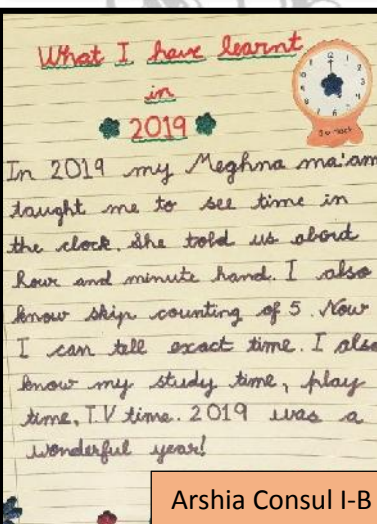 What I have learnt
in
2019
In 2019 my Meghna ma'am
taught me to see time in
the clock. She told us about
hour and minute hand. I also
know skip counting of 5. Now
I can tell exact time. I also
know my study time, play
time, T.V time. 2019 was a
wonderful year!
Arshia Consul I-B